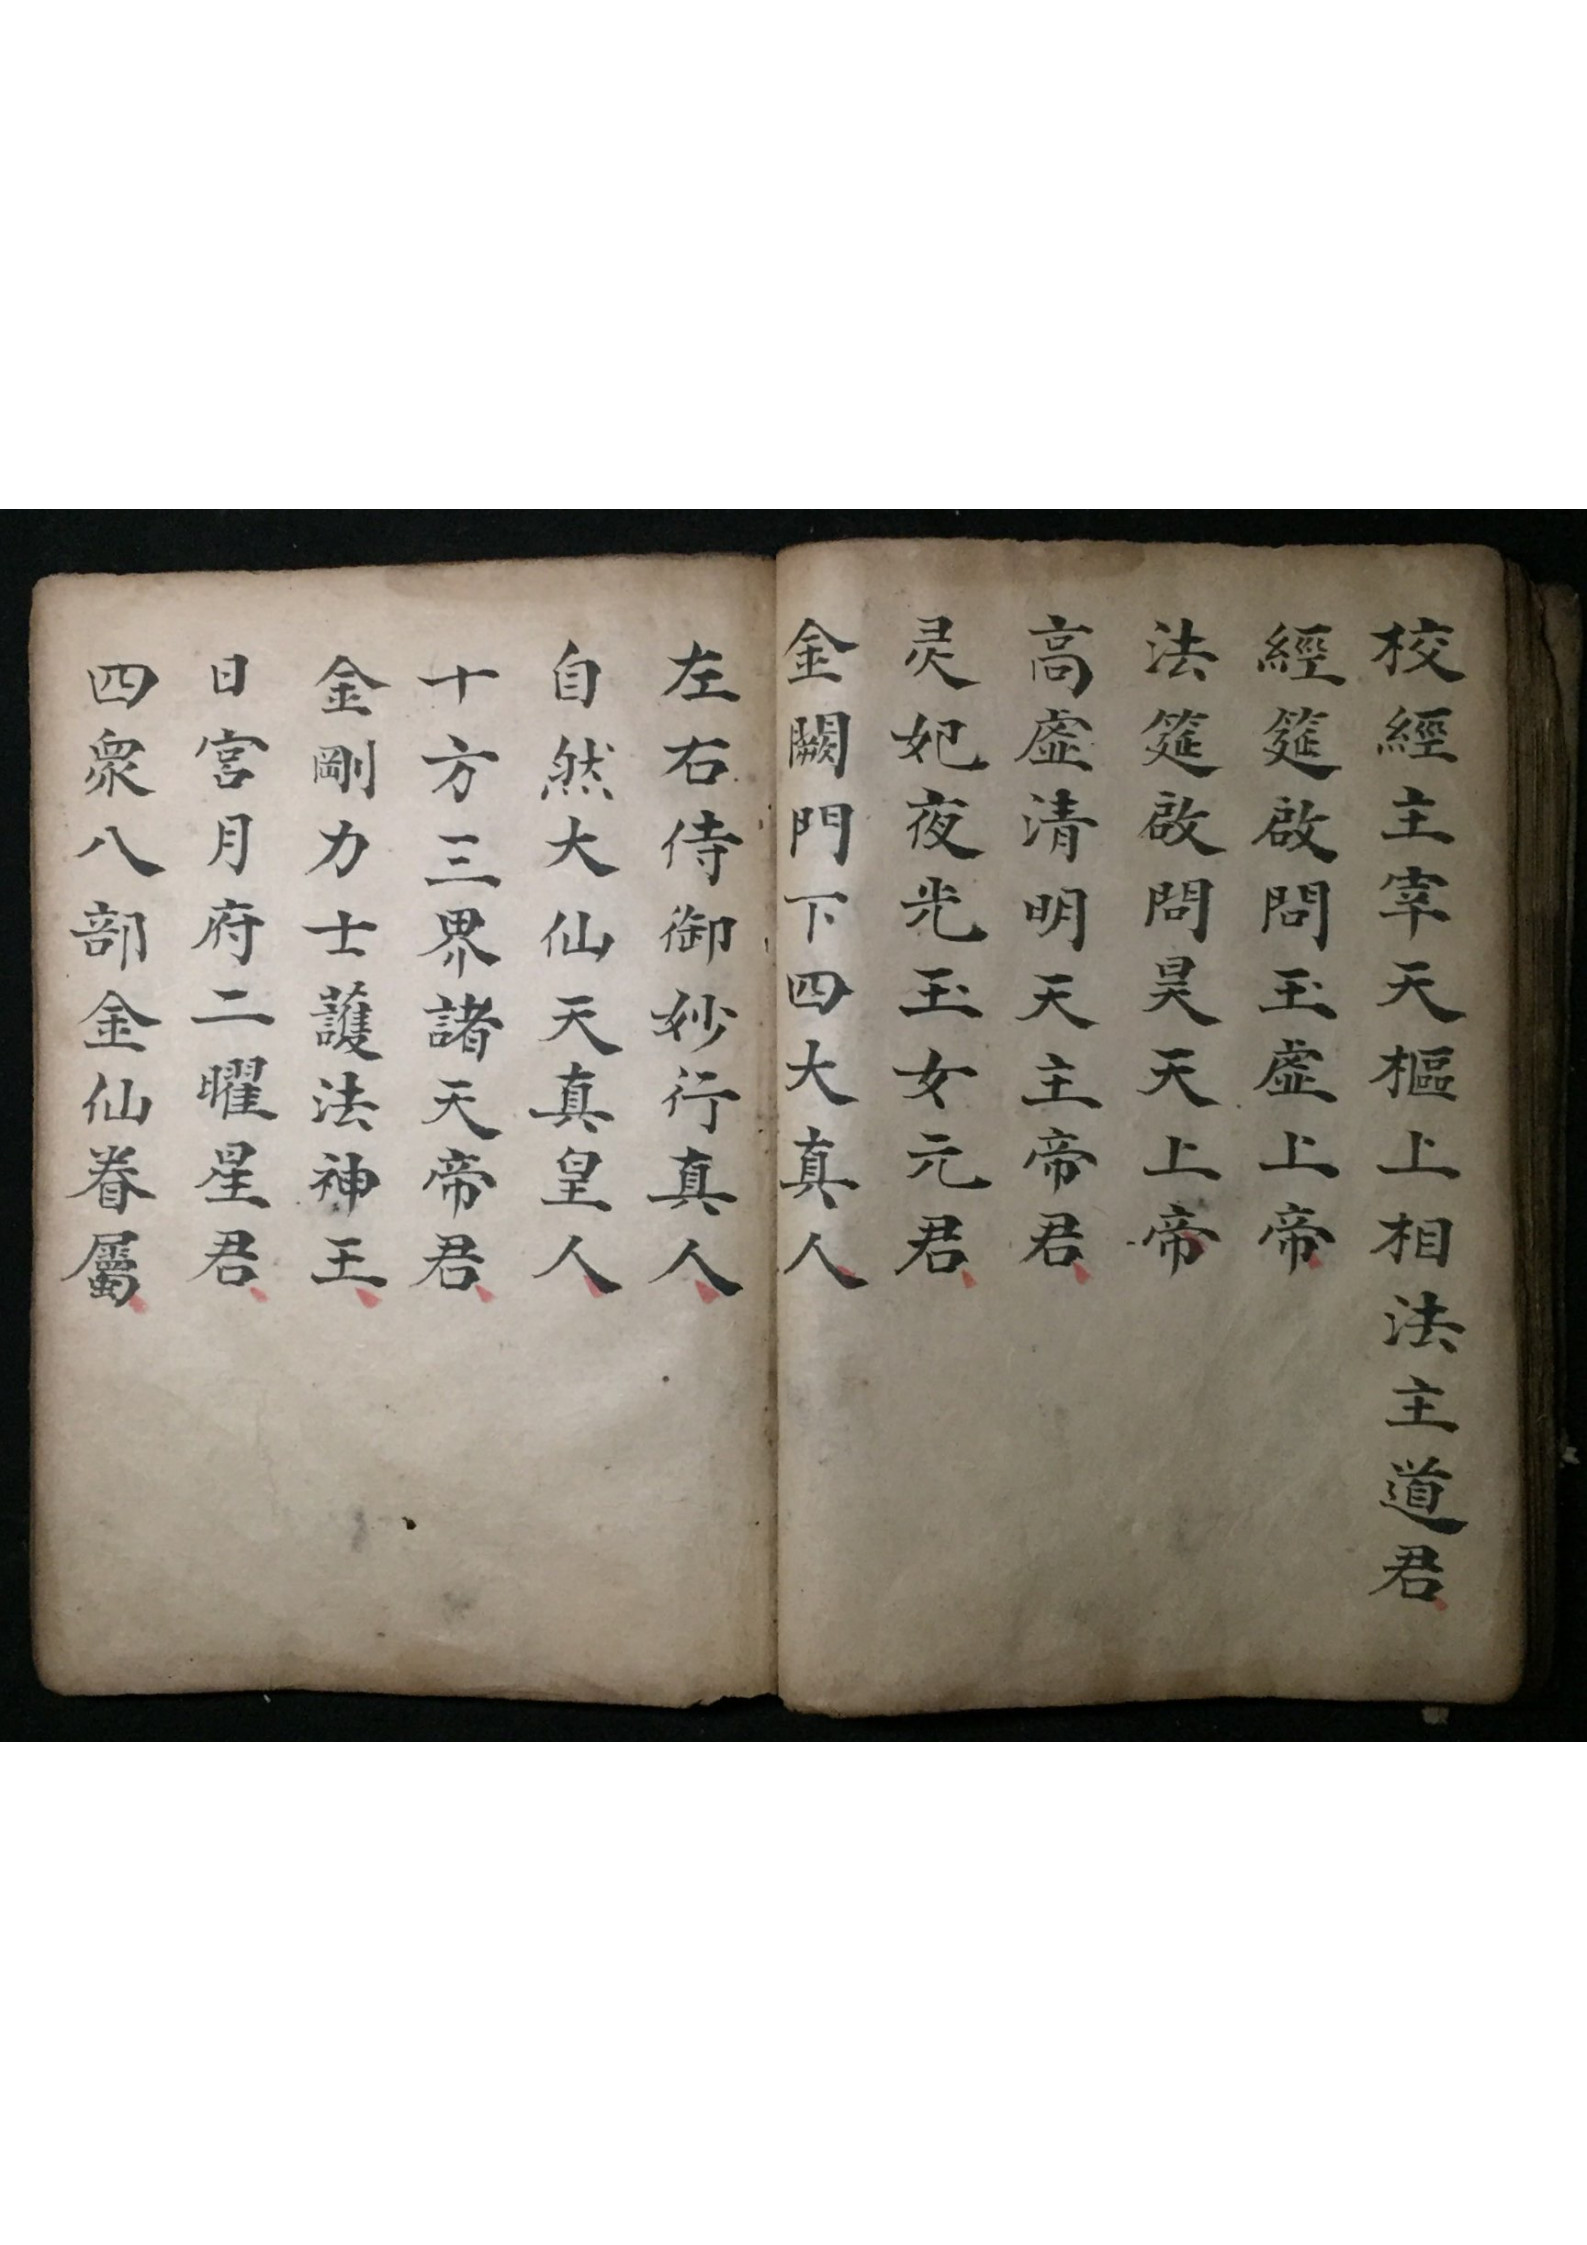 校經主宰天樞上相法主道君
經筵啟問玉虛上帝
法筵啟問昊天上帝
高虛清明天主帝君
灵妃夜光玉女元君
金闕門下四大真人
左右侍御妙行真人
自然大仙天真皇人
十方三界諸天帝君
金剛力士護法神王
日宮月府二曜星君
四衆八部金仙眷屬